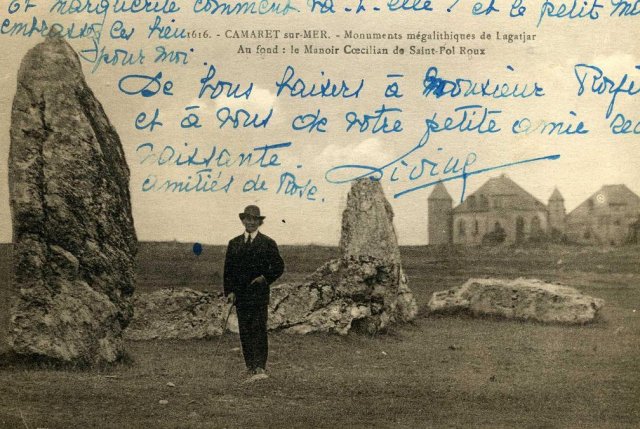 et marguerite comment va-t-elle ? et le petit
embrassez les bien
pour moi.
1616. - CAMARET sur-MER. - Monuments mégalithiques de Lagatjar
Au fond : le Manoir Cœcilian de Saint-Pol Roux
De bons baisers à Monsieur
et à vous de votre petite amie
naissante.
amitiés de Rose.